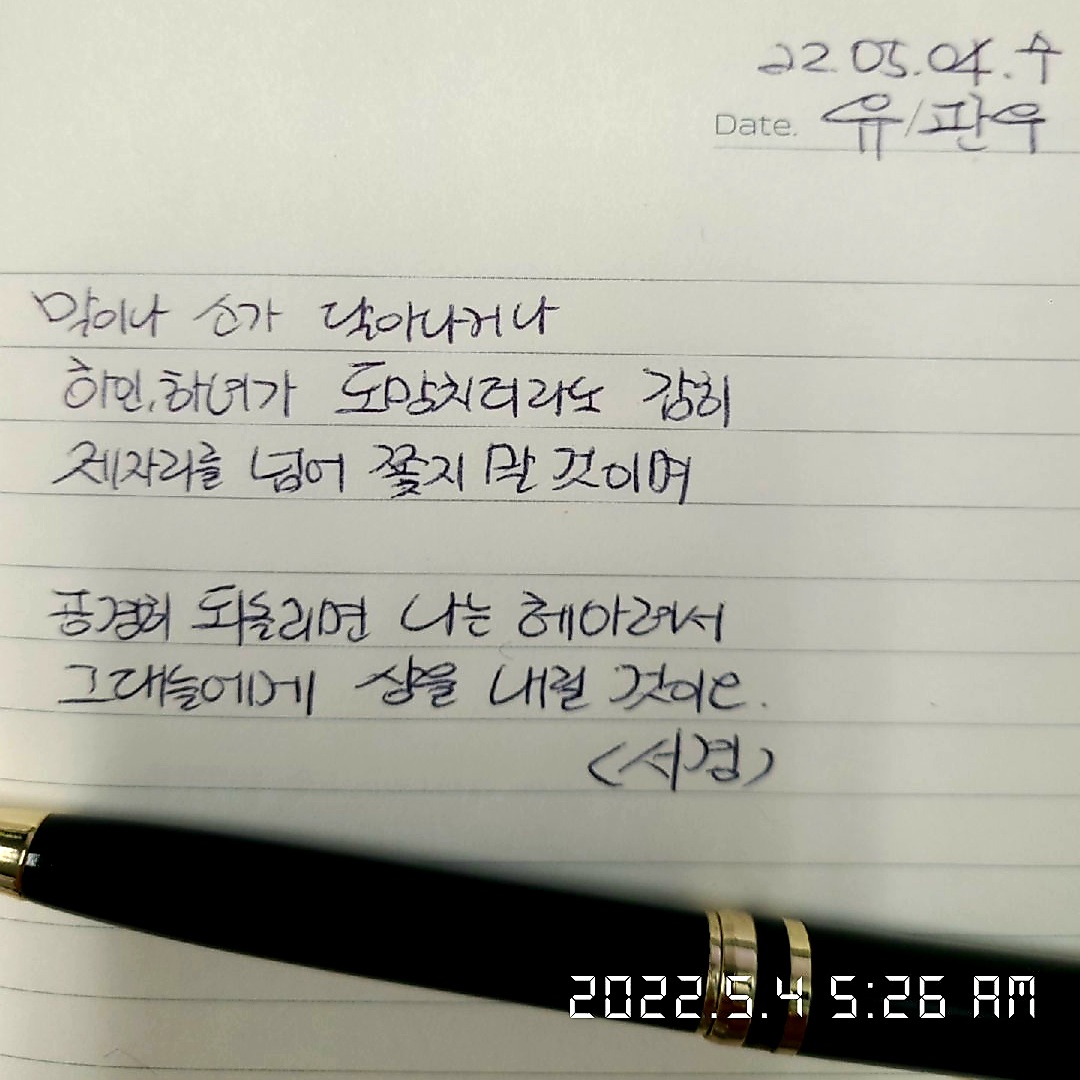 22.05.04.수
Date. 유/판우
말이나 소가 달아나거나
하인,하녀가 도망치더라도 감히
제자리를 넘어 쫓지 말 것이며
공경히 되돌리면 나는 헤아려서
그대들에게 상을 내릴 것이오.
<서경>
2022.5.4 5:26 AM